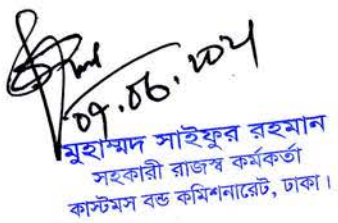 ০৭.০৬.২০২১
মুহাম্মদ সাইফুর রহমান
সহকারী রাজস্ব কর্মকর্তা
কাস্টমস বন্ড কমিশনারেট, ঢাকা।